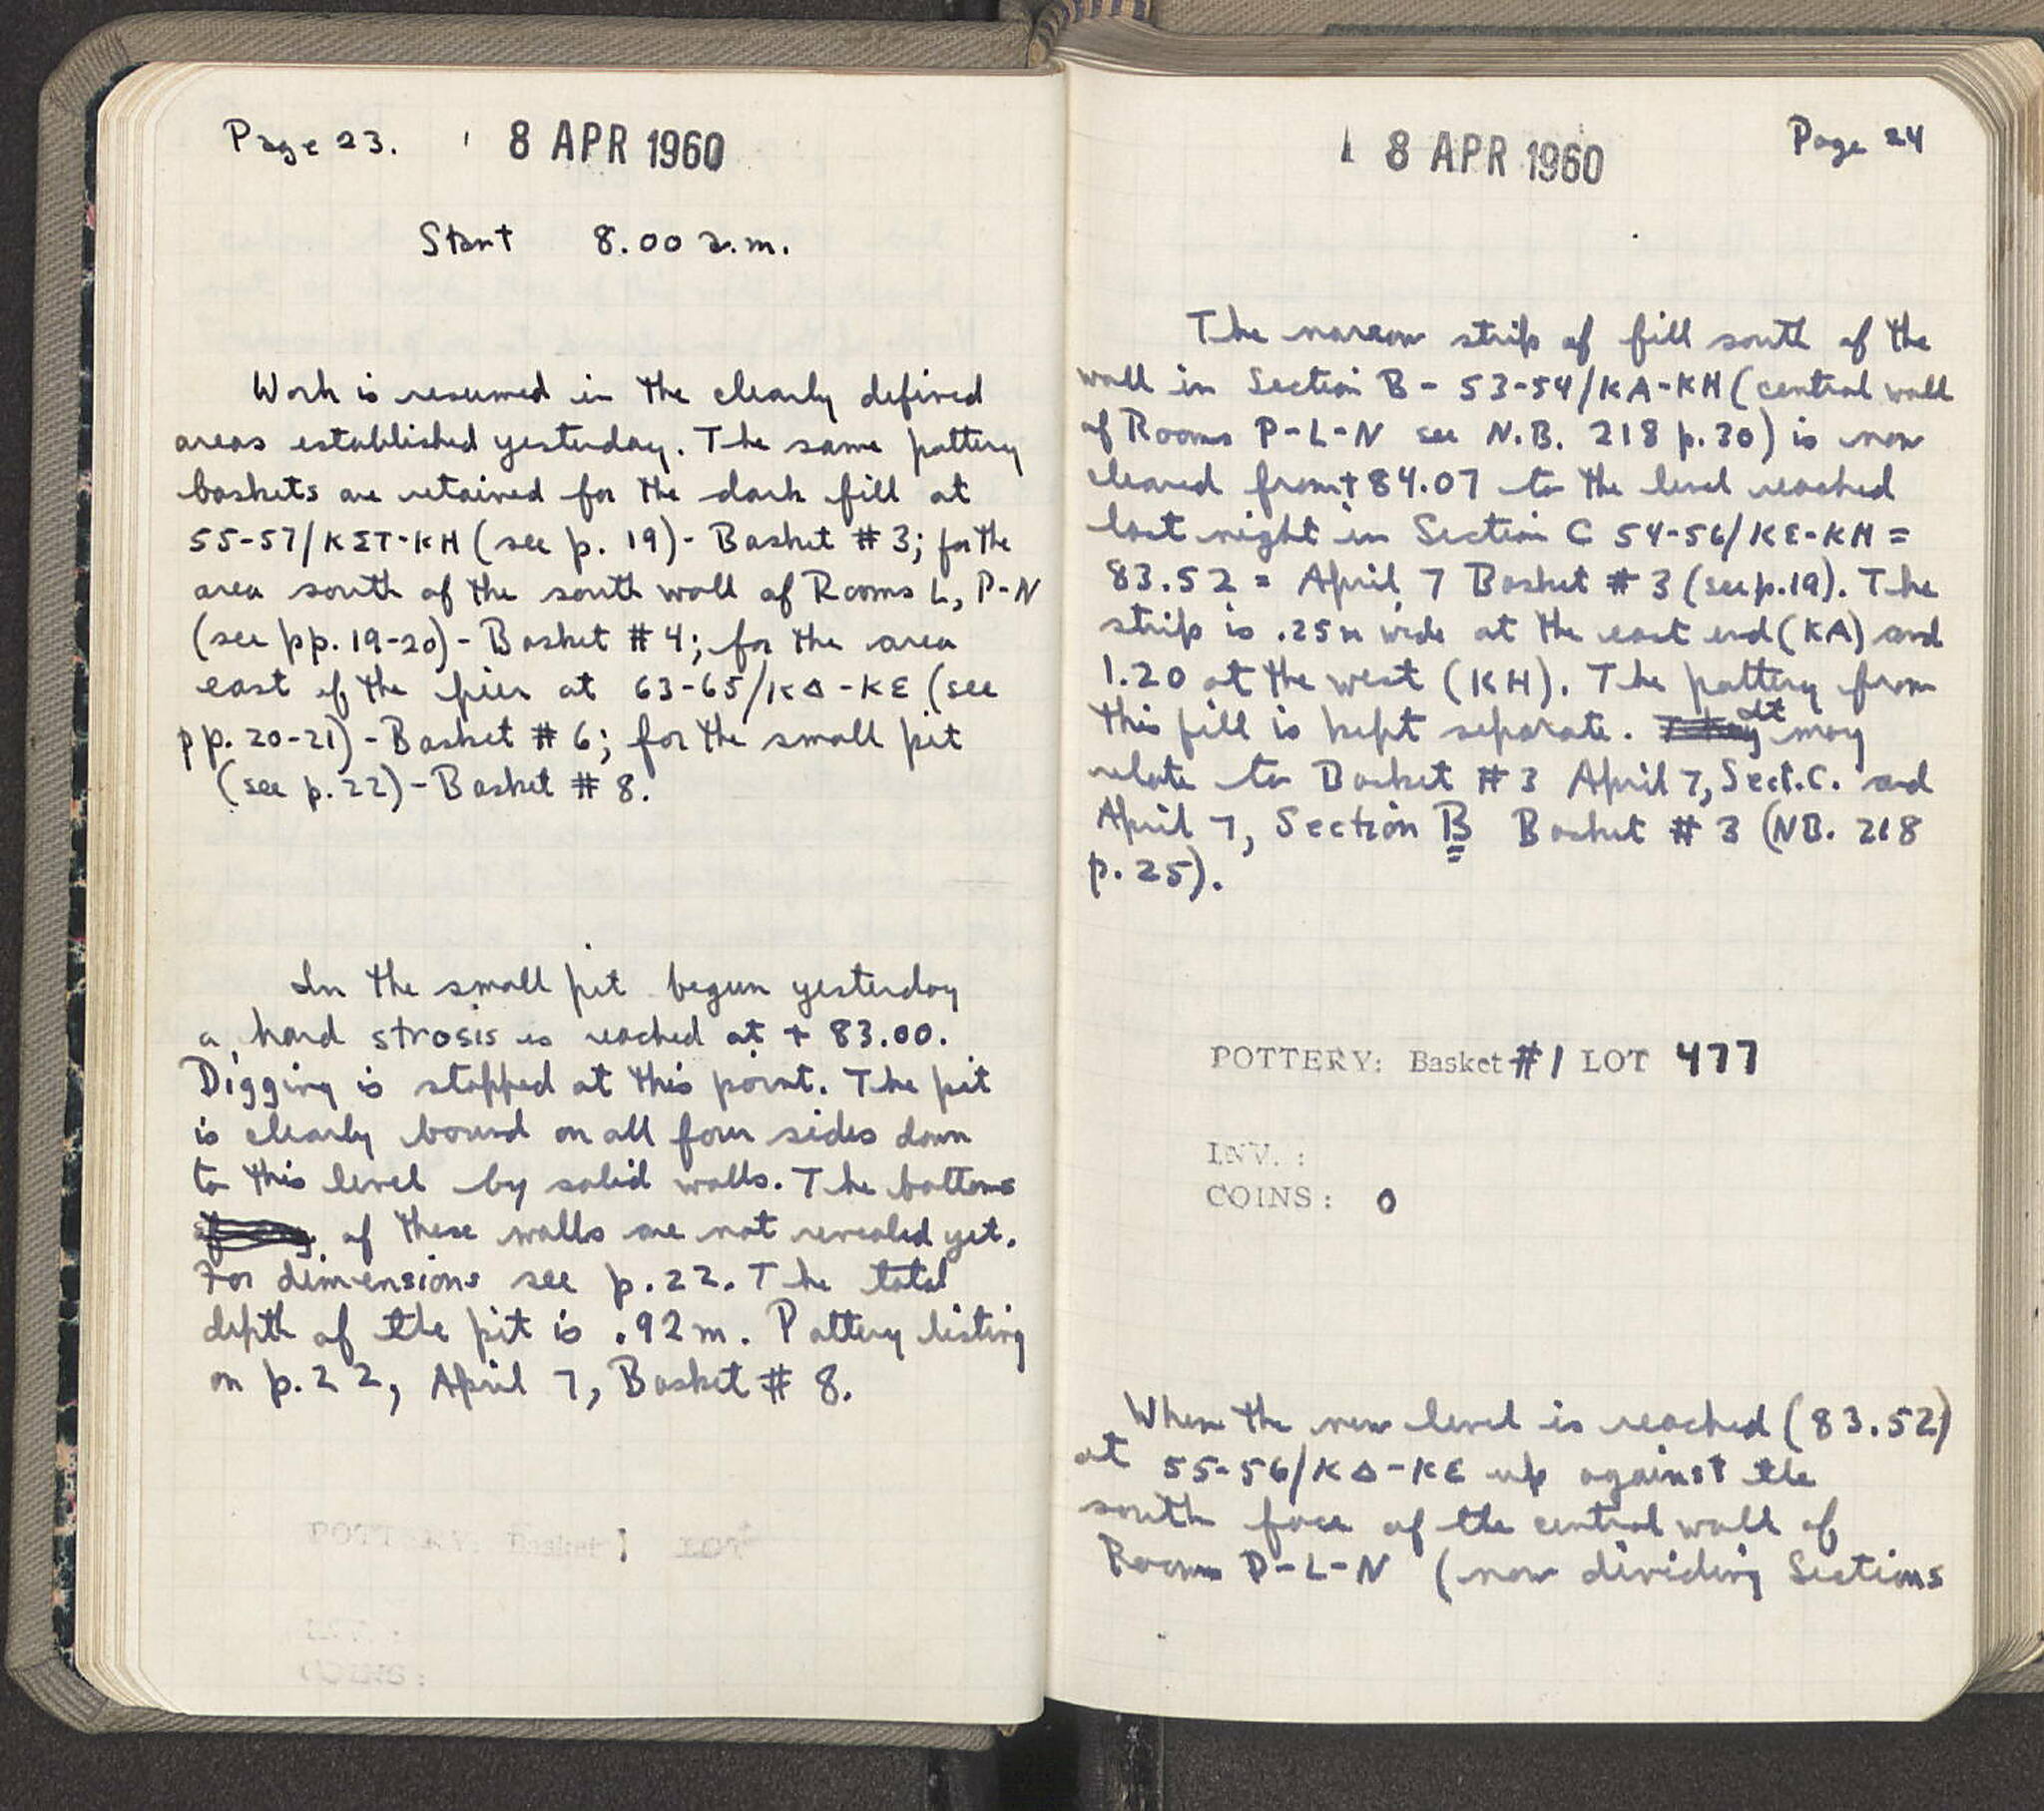 Page 23. 8 APR 1960
Start 8.00 a.m.
Work is resumed in the clearly defined
areas established yesterday. The same pottery
baskets are retained for the dark fill at
55-57/KΣT-KH (see p. 19) - Basket # 3; for the
area south of the south wall of Rooms L, P-N
(see pp. 19-20) - Basket # 4; for the area
east of the pier at 63-65/KΔ-KE (see
pp. 20-21) - Basket # 6; for the small pit
(see p. 22) - Basket # 8.
In the small pit begun yesterday
a hard strosis is reached at + 83.00.
Digging is stopped at this point. The pit
is clearly bound on all four sides down
to this level by solid walls. The bottoms
of these walls are not revealed yet.
For dimensions see p. 22. The total
depth of the pit is .92 m. Pottery listing
on p. 22, April 7, Basket # 8.
POTTERY: Basket 1 LOT
INV. :
COINS :
8 APR 1960 Page 24
The narrow strip of fill south of the
wall in Section B - 53-54/KA-KH (central wall
of Rooms P-L-N see N.B. 218 p. 30) is now
cleared from + 84.07 to the level reached
last night in Section C 54-56/KE-KH =
83.52 = April 7 Basket # 3 (see p. 19). The
strip is .25m wide at the east end (KA) and
1.20 at the west (KH). The pottery from
this fill is kept separate. It may
relate to Basket # 3 April 7, Sect. C. and
April 7, Section B Basket # 3 (NB. 218
p. 25).
POTTERY: Basket #1 LOT 477
INV. :
COINS : 0
When the new level is reached (83.52)
at 55-56/KΔ-KE up against the
south face of the central wall of
Rooms P-L-N (now dividing Sections